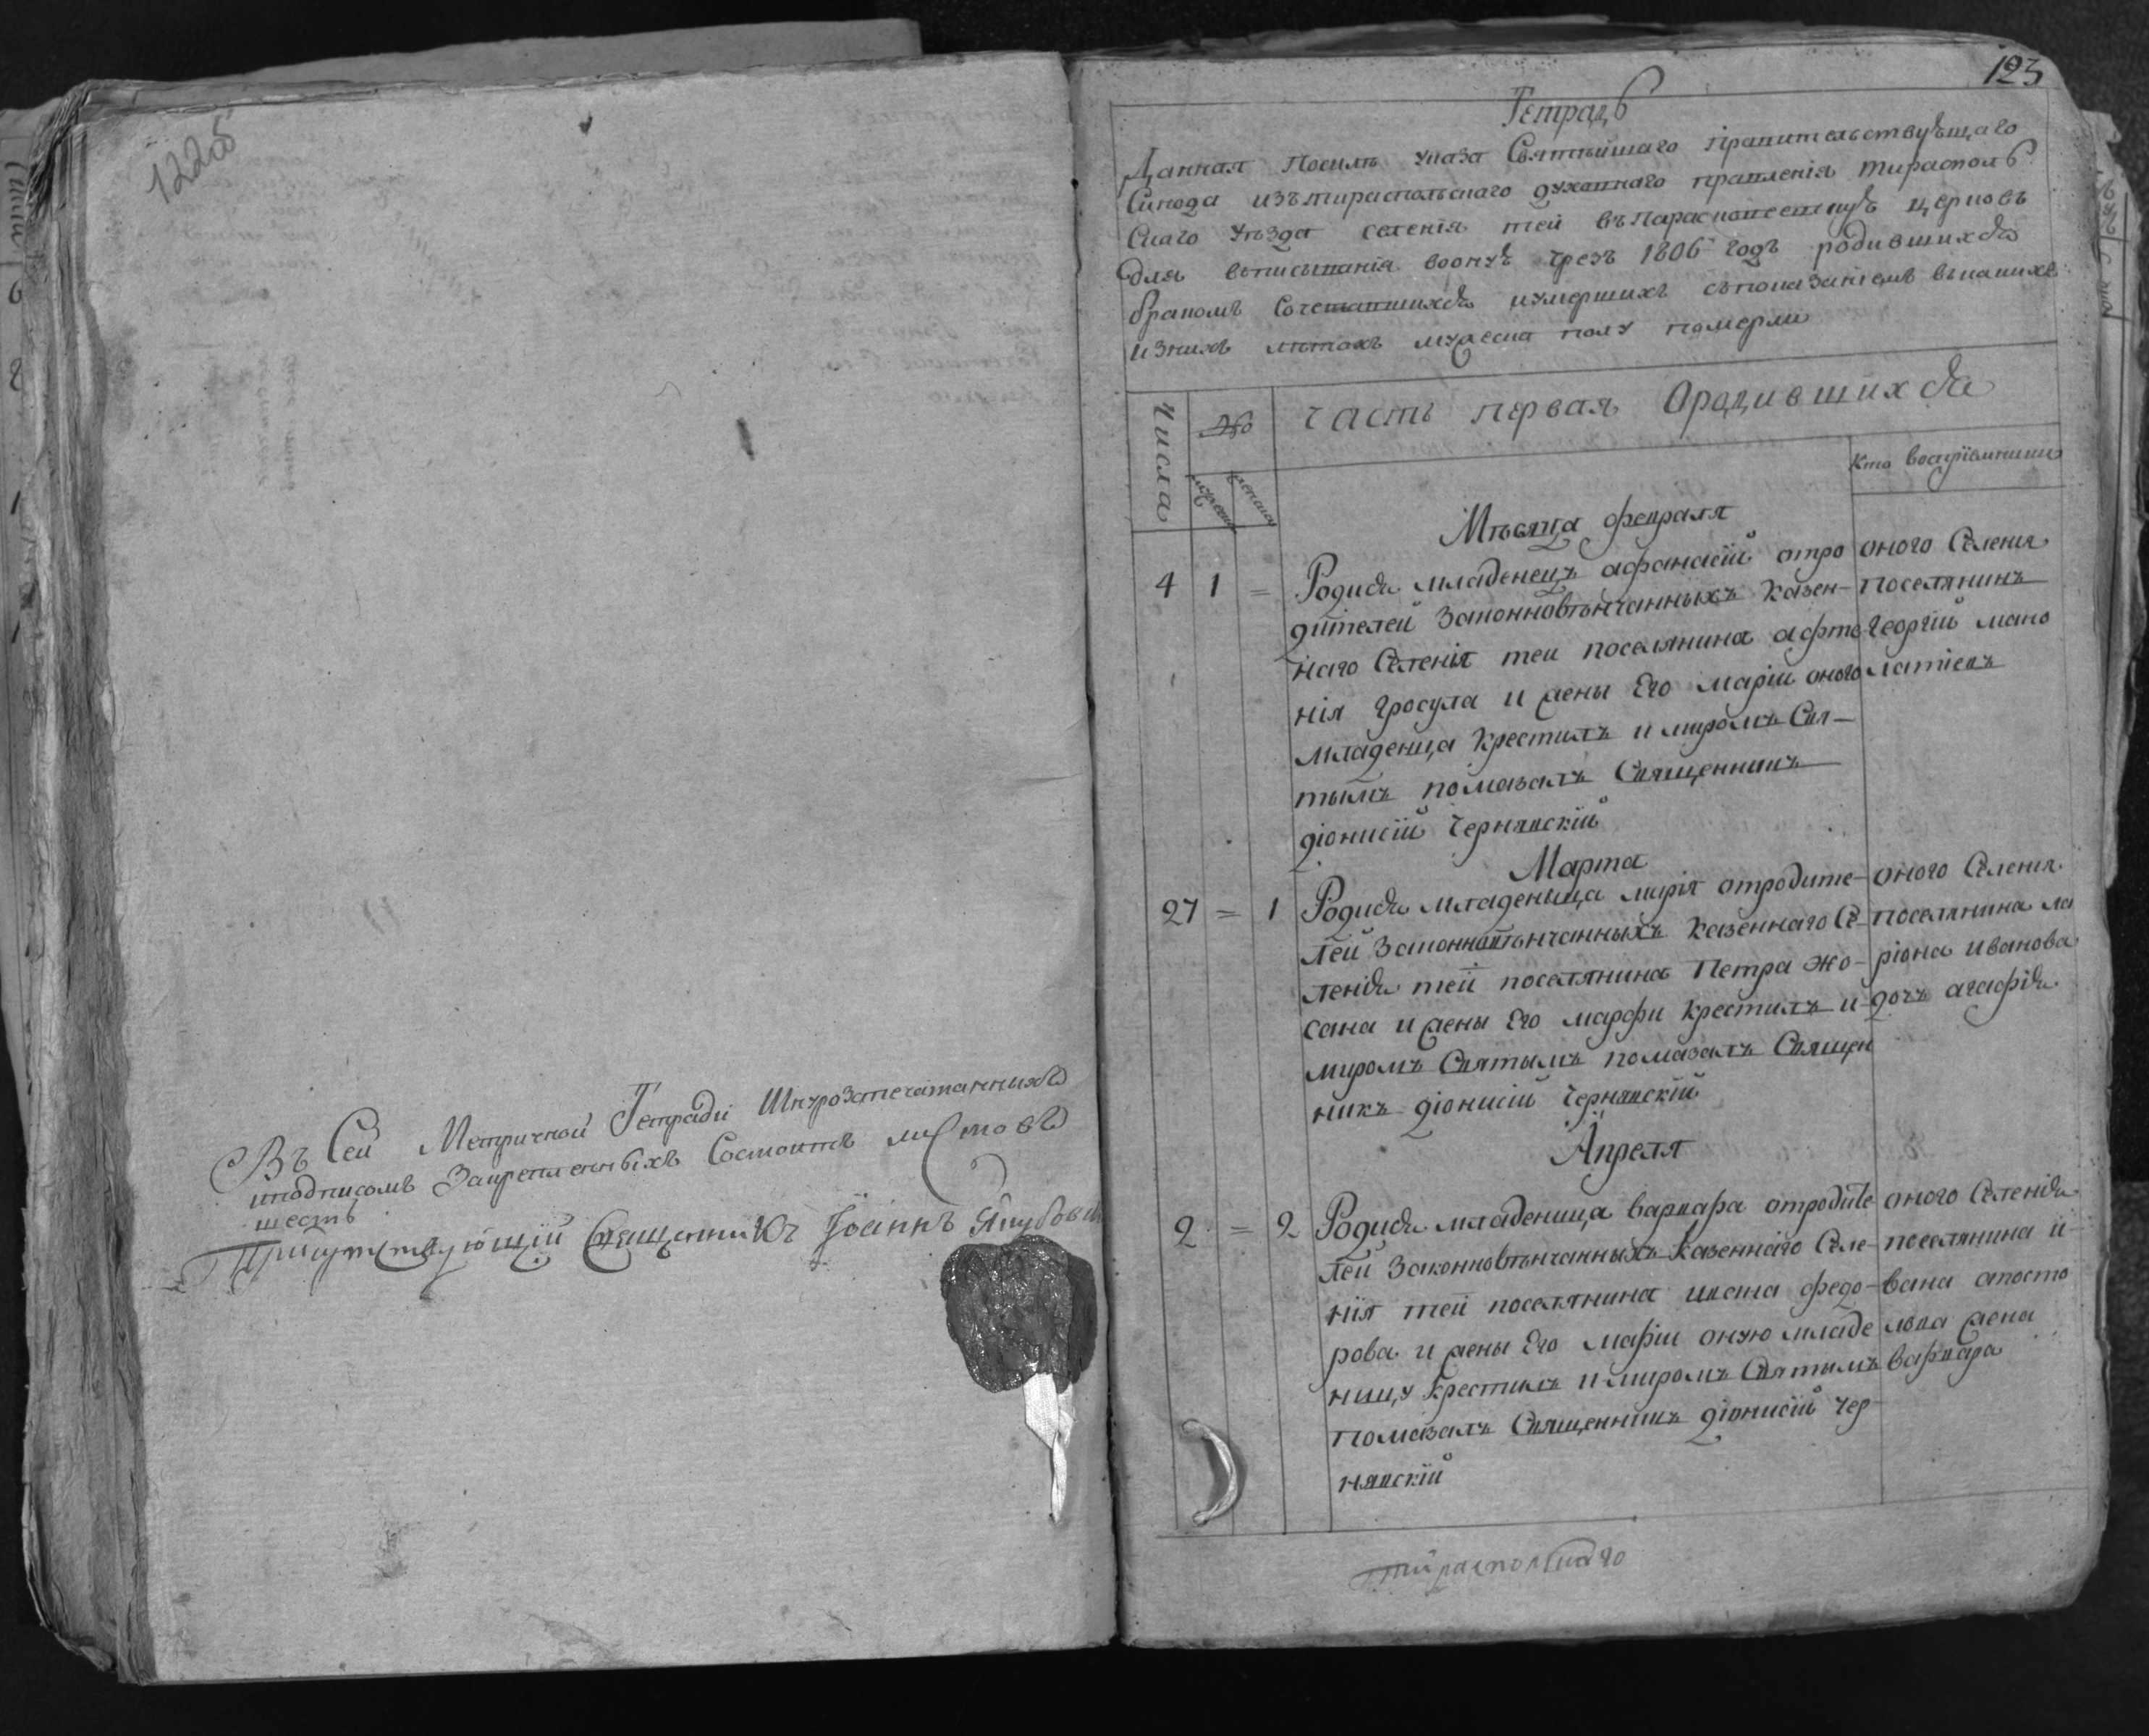 122об
Въ Сей Метричной Тетради Шнурозапечатанныхъ
иподписомъ Закрепленныхъ Состоитъ листовъ
шесть
Присутствующій Священникъ Іоаннъ
123
Тетрадь
Данная Посилѣ указа Святѣйшаго Правительствующаго
Синода изътираспольскаго духовнаго правленія тирасполь
скаго уѣзда селенія теи въпараскевеевскую церковь
для вписыванія воону чрезъ 1806 годъ родившихся
бракомъ Сочетавшихся иумершихъ съпоказаніемъ въкакихъ
изнихъ лѣтахъ мужеска полу померли
Числа
№о
мужеска
женска
часть первая Ородившихся
Кто воспріемники
Мѣсяца февраля
4 1 = Родися младенецъ афанасій отро
дителей Законновѣнчанныхъ казен-
наго Селенія теи поселянина афте
нія гросула и жены Его маріи оного
младенца крестилъ и миромъ Свя-
тымъ помазалъ Священникъ
діонисій Чернявскій
оного Селения
поселянинъ
Георгій мано
латіевъ
Марта
27 = 1 Родися младеница марія отродите-
лей Законновѣнчанныхъ казеннаго Се-
ленія теи поселянина Петра жо-
сана и жены Его марфи крестилъ и
миромъ Святымъ помазалъ Священ
никъ діонисій Чернявскій
оного Селения
поселянина ла
ріона иванова
дочъ агафія
Апреля
2 = 2 Родися младеница варвара отродите
лей Законновѣнчанныхъ казеннаго Селе-
нія теи поселянина федо-
рова и жены Его маріи оную младе
ницу крестилъ и миромъ Святымъ
помазалъ Священникъ діонисій Чер-
нявскій
оного Селенія
поселянина и-
вана апосто
лова жена
варвара
тираспольскаго